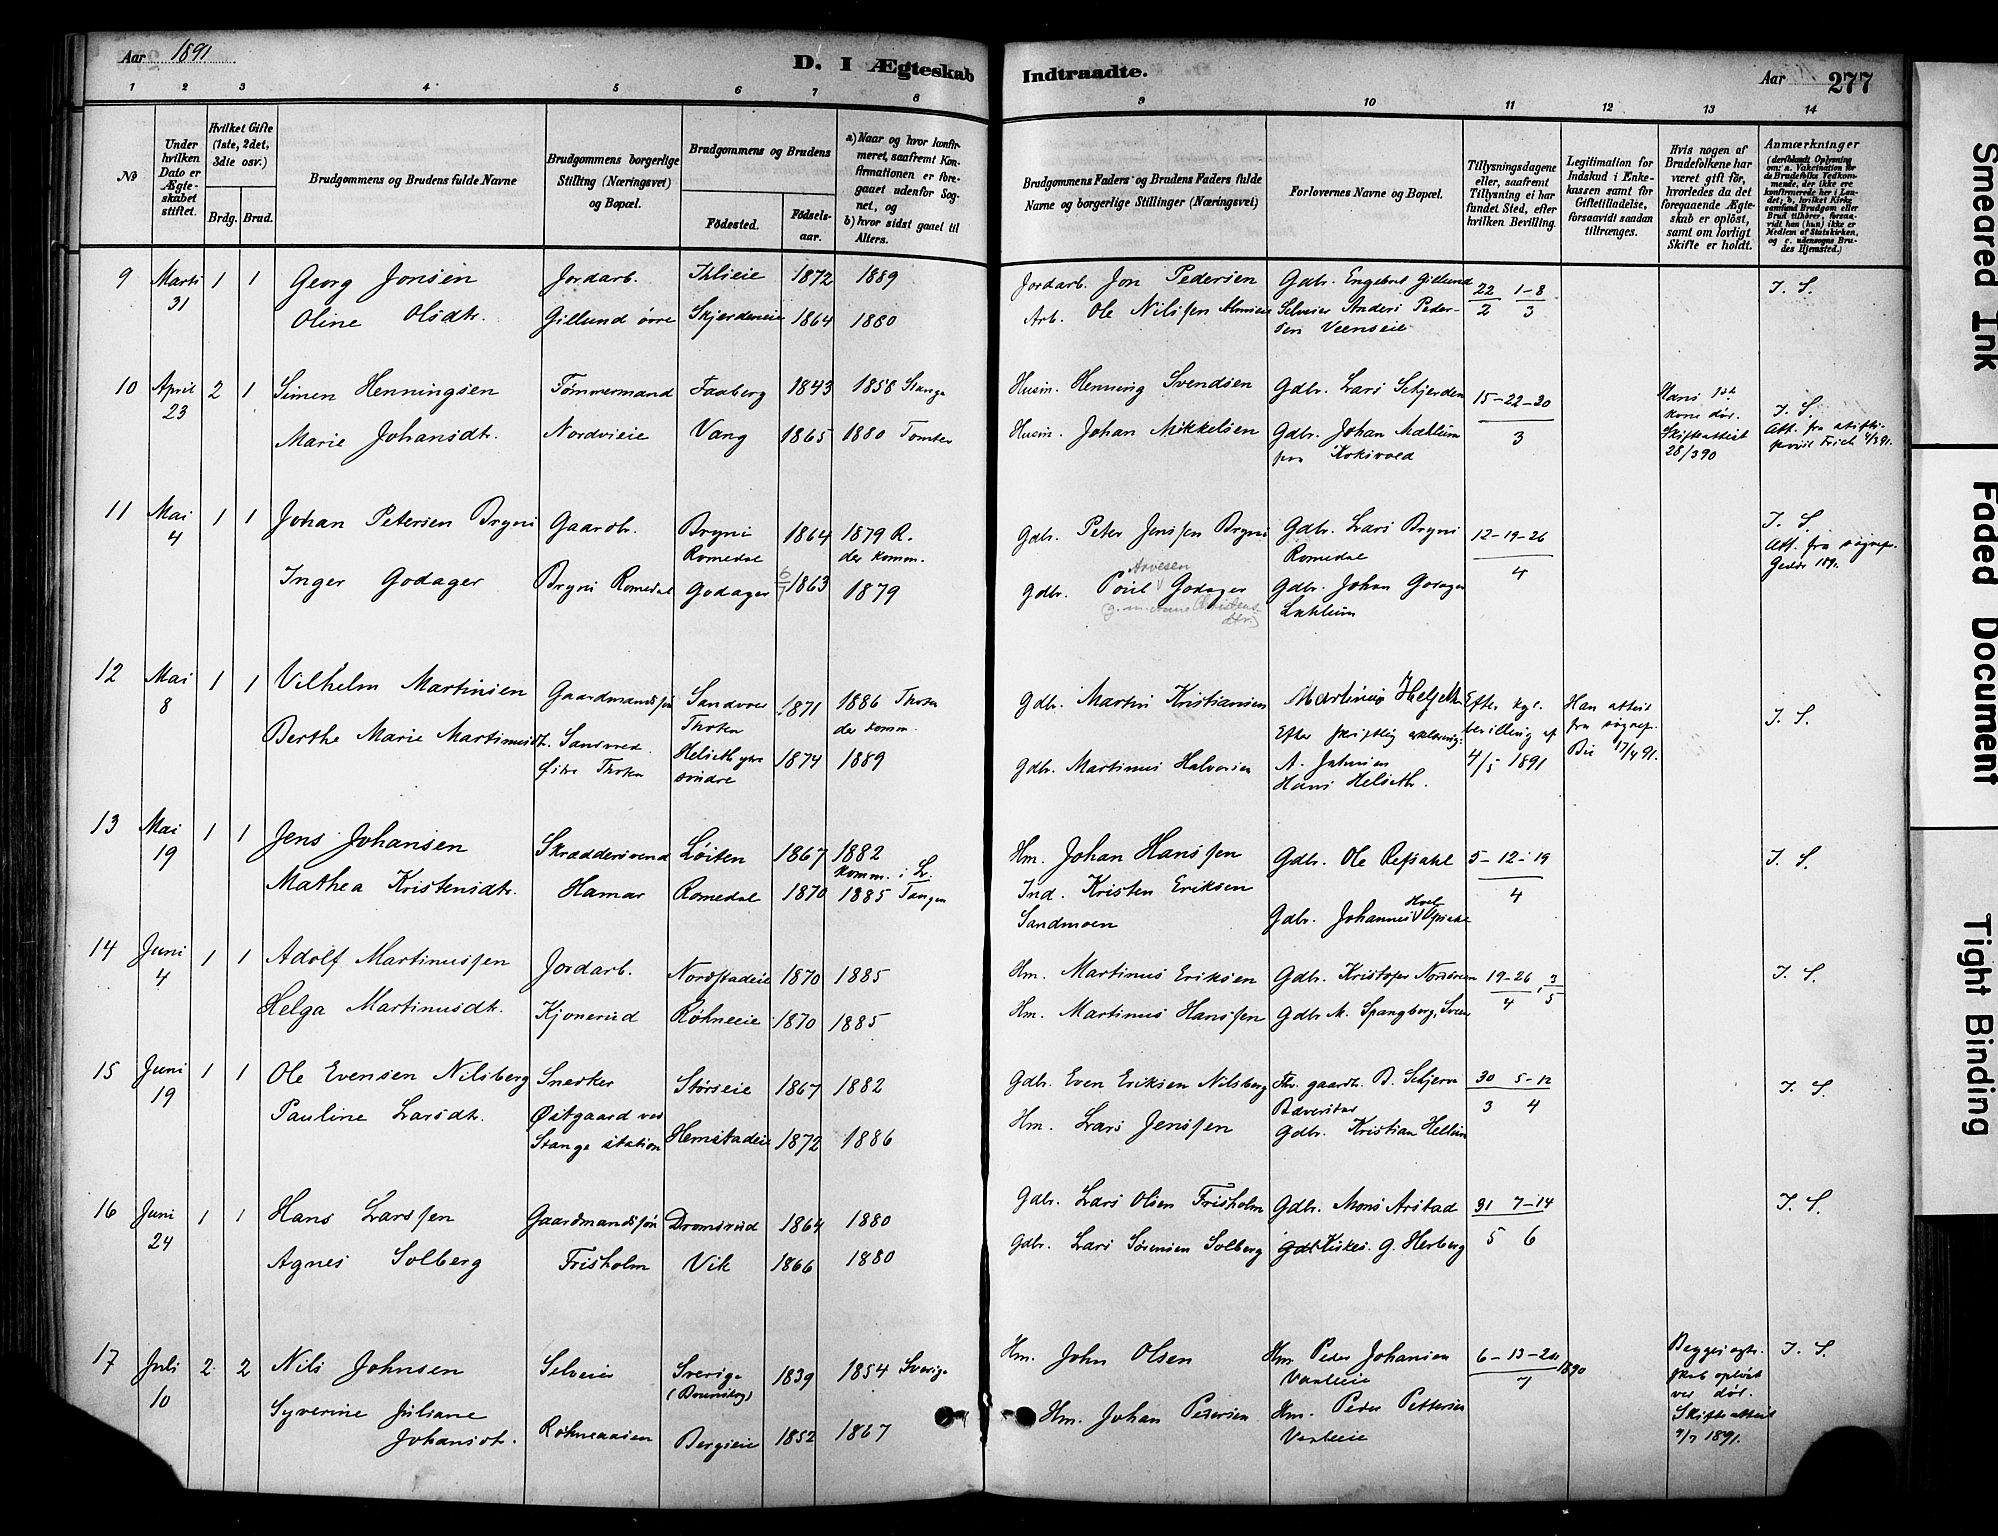 Aar 1891
D. I Ægteskab Indtraadte.
Aar
277
1 2 3 4 5 6 7 8 9 10 11 12 13 14
No
Under hvilken Dato er Ægteskabet stiftet.
Hvilket Gifte (1ste, 2det, 3die osv.)
Brdg. Brud.
Brudgommens og Brudens fulde Navne
Brudgommens borgerlige Stilling (Næringsvei) og Bopæl.
Brudgommens og Brudens
Fødested.
Fødsels-aar.
a) Naar og hvor konfirmeret, saafremt Konfirmationen er foregaaet udenfor Sognet, og
b) hvor sidst gaaet til Alters.
Brudgommens Faders og Brudens Faders fulde Navne og borgerlige Stillinger (Næringsvei)
Forlovernes Navne og Bopæl.
Tillysningsdagene eller, saafremt Tillysning ei har fundet Sted, efter hvilken Bevilling.
Legitimation for Indskud i Enkekassen samt for Giftetilladelse, forsaavidt saadan tiltrænges.
Hvis nogen af Brudefolkene har været gift før, hvorledes da det foregaaende Ægteskab er opløst, samt om lovligt Skifte er holdt.
Anmærkninger
9 Marts 31 1 1 Georg Jonsen Jordarb. 1872 1889 Jordarb. Jon Pedersen Gdbr. Engebret Gillund 22 1-8 I. S.
Oline Olsdtr. Gillund øvre Skjerdeneie 1864 1880 Arb. Ole Nilssen Selveier Anders Peder- 2 3
sen Veenseie
10 April 23 2 1 Simen Henningsen Tømmermand Faaberg 1843 1858 Stange Husm. Henning Svendsen Gdbr. Lars Skjerden 15-22-20 Hans 1ste kone død. Skifteattest 28/3 90 I. S.
Marie Johansdtr. Nordvieie Vang 1865 1880 Tomter Husm. Johan Mikkelsen Gdbr. Johan Mællum 3 Att. fra
11 Mai 4 1 1 Johan Petersen Bryni Gaardbr. Bryni Romedal 1864 1879 R. der komm. Gdbr. Peter Jenssen Bryni Gdbr. Lars Bryni Romedal 12-19-26 I. S.
Inger Godager Bryni Romedal Godager 6/7 1863 1879 Gdbr. Poul Arvesen Godager Gdbr. Johan Godager 4 Att. fra sognep.
12 Mai 8 1 1 Vilhelm Martinsen Gaardmandssøn Thoten 1871 1886 Thoten der komm. Gdbr. Martin Kristiansen Martinus Helseth Efter kgl. bevilling af 4/5 1891 Han attest fra sognep. 17/4 91. I. S.
Berthe Marie Martinusdtr. Østre Thoten Helseth søndre 1874 1889 Gdbr. Martinus Halvorsen Efter skriftlig erklæring: Hans Helseth.
13 Mai 19 1 1 Jens Johansen Skræddersvend Løiten 1867 1882 komm. i L. Hm. Johan Hanssen Gdbr. Ole Refsahl 5-12-19 I. S.
Mathea Kristensdtr. Hamar Romedal 1870 1885 Tangen Ind. Kristen Eriksen Sandmoen Gdbr. Johannes 4
14 Juni 4 1 1 Adolf Martinussen Jordarb. Nordstadeie 1870 1885 Hm. Martinus Eriksen Gdbr. Kristofer 19-26 3 I. S.
Helga Martinusdtr. Kjonerud Røhneeie 1870 1885 Hm. Martinus Hanssen Gdbr M. Spangberg, 4 5
15 Juni 19 1 1 Ole Evensen Nilsberg Snedker Størseie 1867 1882 Gdbr. Even Eriksen Nilsberg Fhv. gaardbr. B. Skjerve 30 5-12 I. S.
Pauline Larsdtr. Østgaard ved Stange station Hemstadeie 1872 1886 Hm. Lars Jenssen Gdbr. Kristian Hellum 3 4
16 Juni 24 1 1 Hans Larssen Gaardmandssøn Dromsrud 1864 1880 Gdbr. Lars Olsen Frisholm Gdbr. Mons Arstad 31 7-14 I. S.
Agnes Solberg Frisholm Vik 1866 1880 Gdbr. Lars Sørensen Solberg G. Herberg 5 6
17 Juli 10 2 2 Nils Johnsen Selveier Sverige 1839 1854 Sverige Hm. John Olsen Hm Peder Johansen 6-13-20 7 1890 Begges egteskab opløst ved død. Skifteattest 9/7 1891. I. S.
Syverine Juliane Johansdtr. Røhneaasen Bergseie 1852 1867 Hm. Johan Petersen Hm. Peder Pettersen
Smeared Ink
Faded Document
Tight Binding